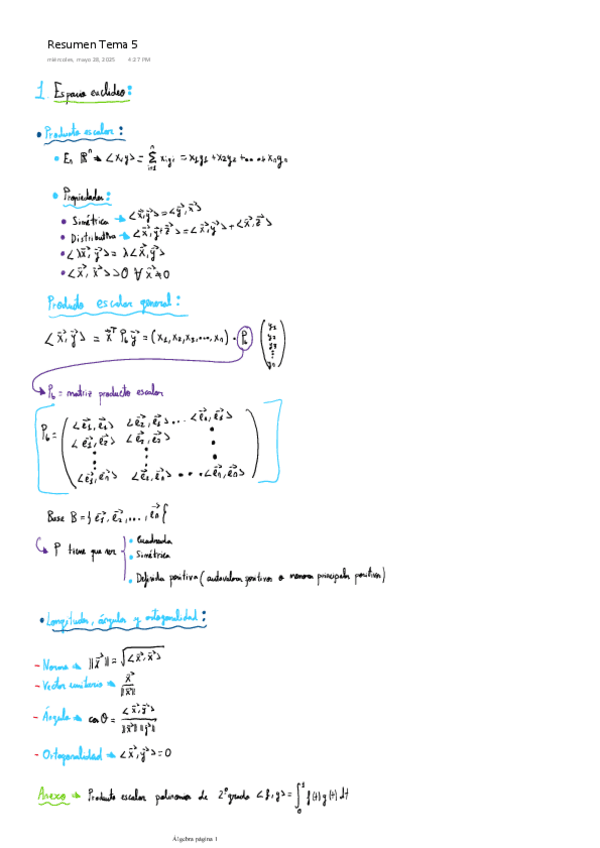 Resumen Tema 5
miércoles, mayo 28, 2025 4:27 PM
1. Espacio euclídeo:
• Producto escalar:
• En ℝⁿ → <x,y> = Σ_{i=1}^{n} xiyi = x1y1 + x2y2 + ... + xnyn
• Propiedades:
• Simétrica → <x⃗,y⃗> = <y⃗,x⃗>
• Distributiva → <x⃗,y⃗+z⃗> = <x⃗,y⃗> + <x⃗,z⃗>
• <λx⃗,y⃗> = λ<x⃗,y⃗>
• <x⃗,x⃗> > 0 ∀ x⃗ ≠ 0
Producto escalar general:
<x⃗,y⃗> = x⃗ᵀ P_b y⃗ = (x1,x2,x3,...,xn) · P_b (y1 y2 y3 ⋮ yn)
P_b = matriz producto escalar
P_b = ( <e⃗1,e⃗1> <e⃗2,e⃗1> ... <e⃗n,e⃗1>
<e⃗1,e⃗2> <e⃗2,e⃗2> •
• • •
<e⃗1,e⃗n> <e⃗2,e⃗n> • • • <e⃗n,e⃗n> )
Base B = { e⃗1, e⃗2, ..., e⃗n }
• Cuadrada
P tiene que ser • Simétrica
• Definida positiva (autovalores positivos o menores principales positivos)
• Longitudes, ángulos y ortogonalidad:
- Norma → ||x⃗|| = √<x⃗,x⃗>
- Vector unitario → x⃗ / ||x⃗||
- Ángulo → cos θ = <x⃗,y⃗> / ||x⃗|| ||y⃗||
- Ortogonalidad → <x⃗,y⃗> = 0
Anexo → Producto escalar polinomios de 2º grado <f,g> = ∫₀¹ f(t) g(t) dt
Álgebra página 1